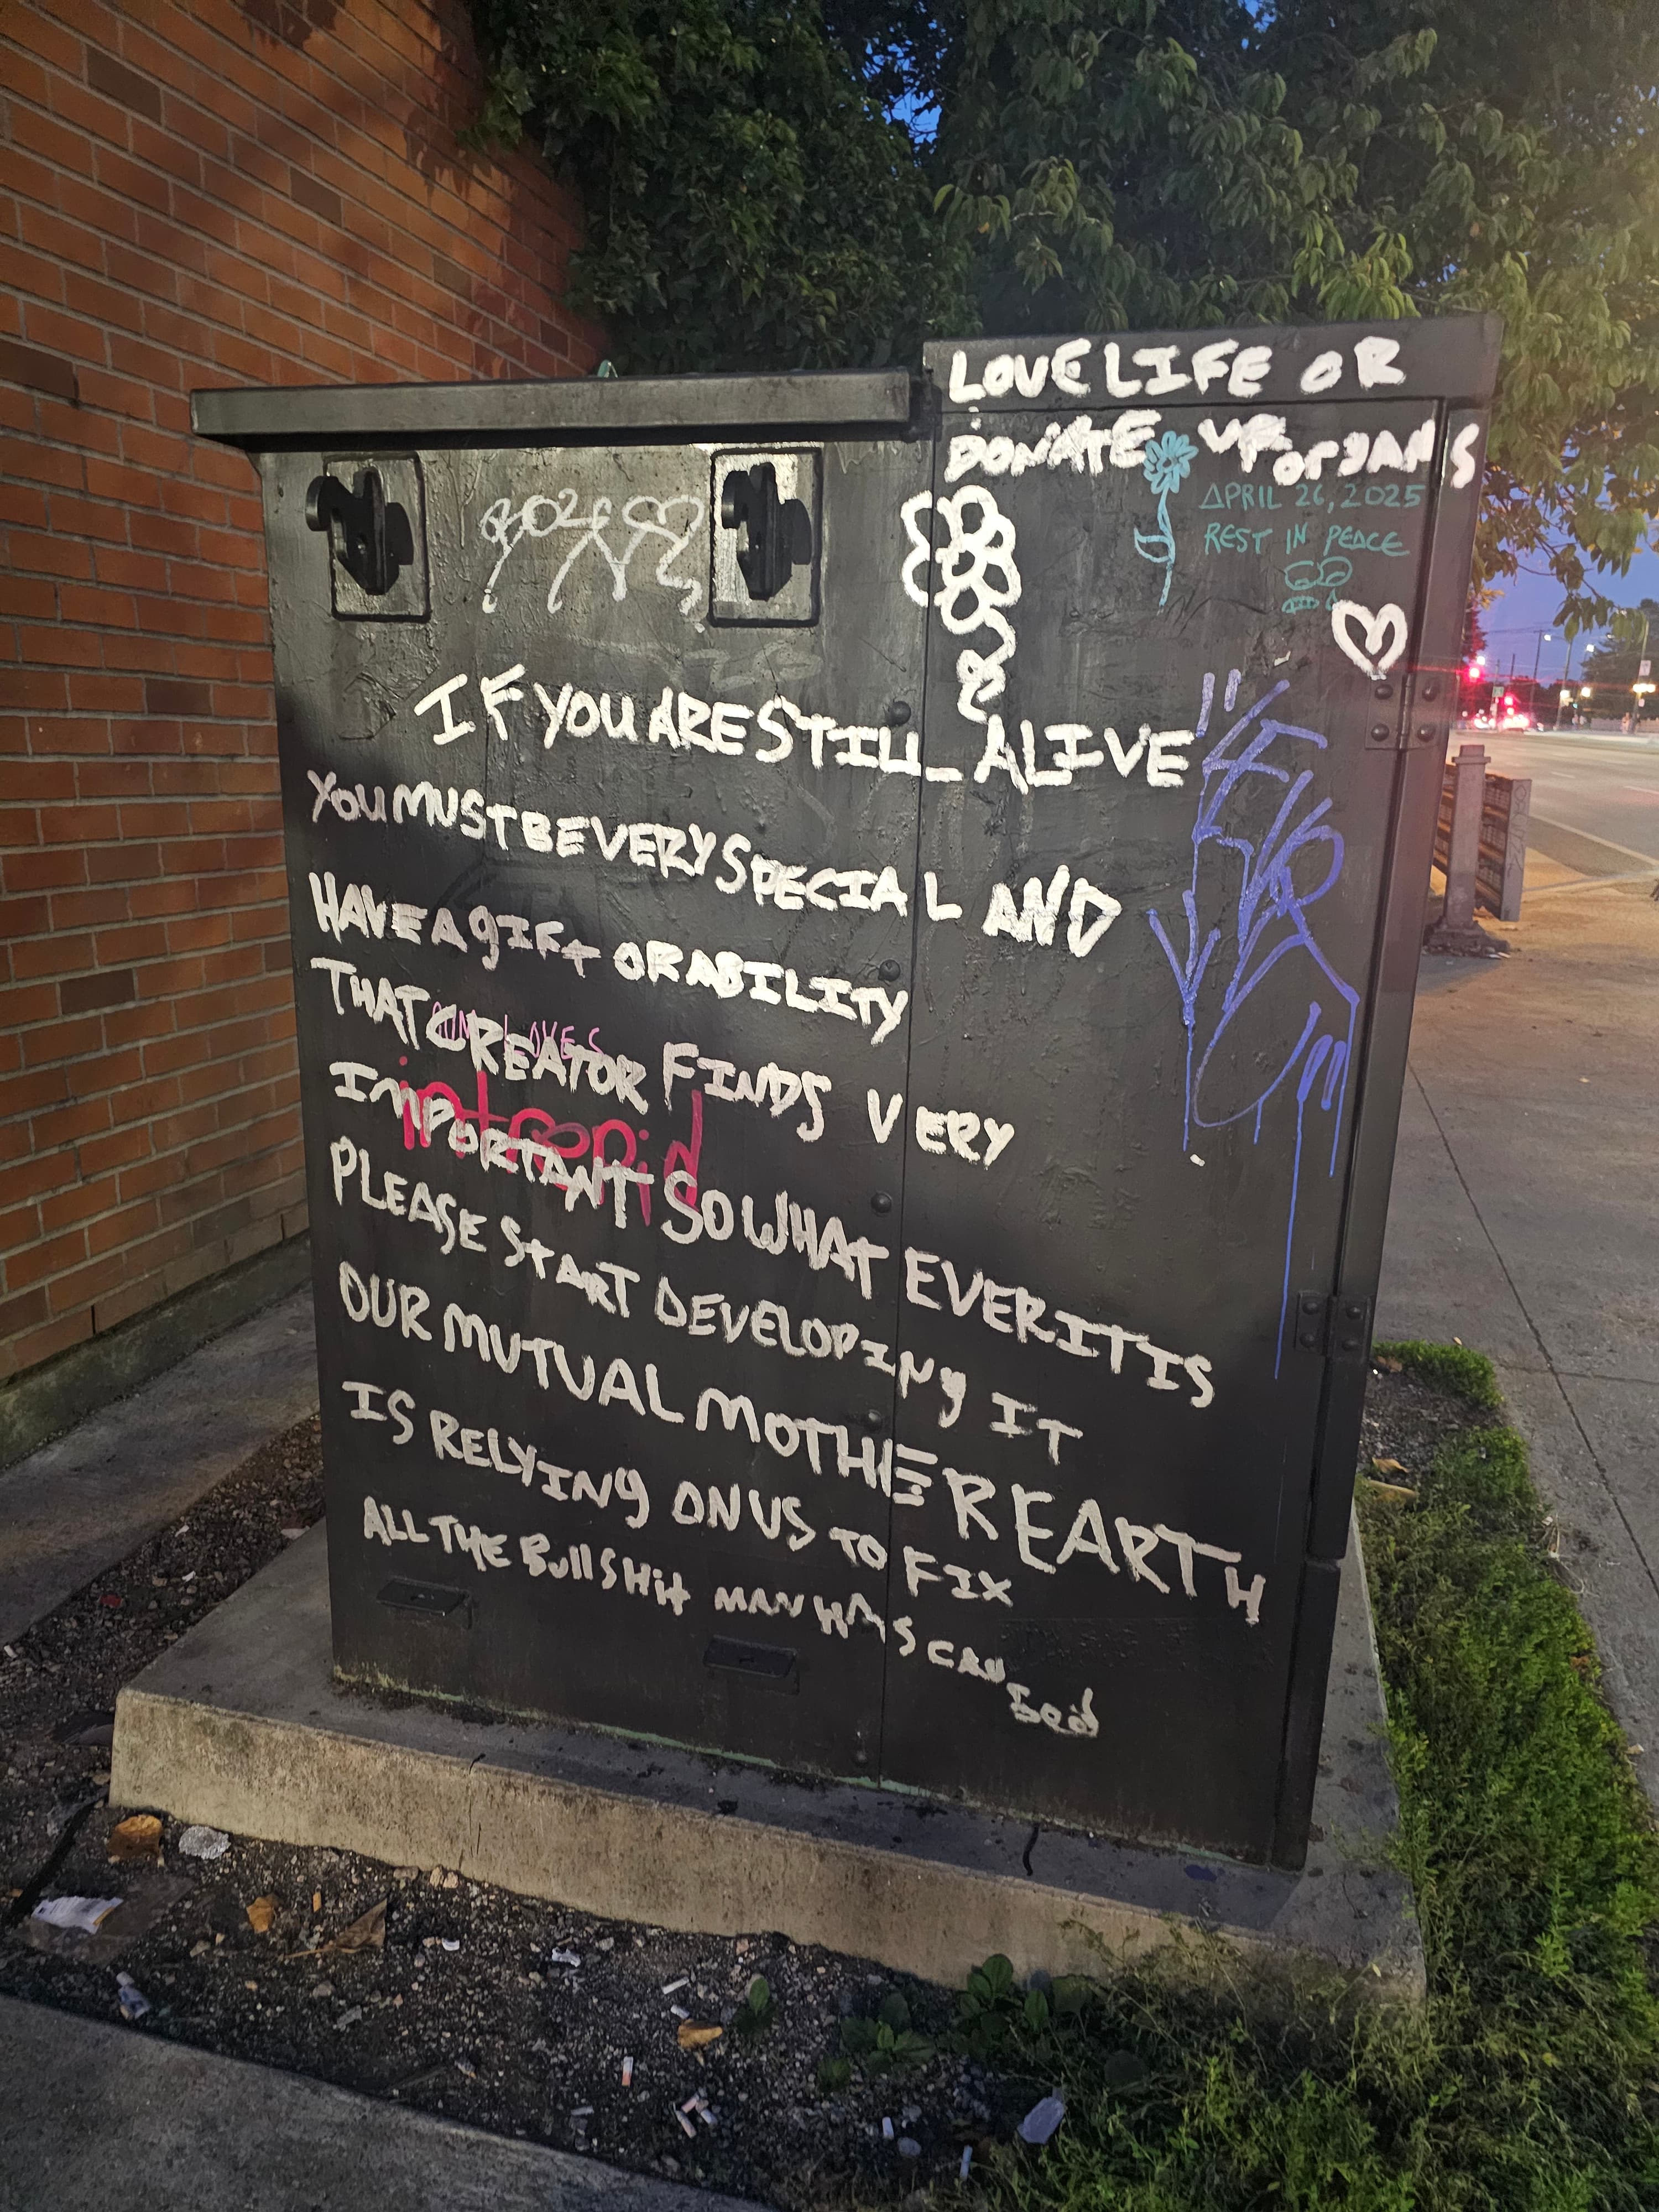 LOVE LIFE OR
DONATE UR OrgANS
APRIL 26, 2025
REST IN PEACE
IF YOU ARE STILL ALIVE
YOU MUST BE VERY SPECIAL AND
HAVE A gIFt OR ABILITY
THAT CREATOR FINDS VERY
LOVES
intrepid
IMPORTANT SO WHAT EVER IT IS
PLEASE START DEVELOPINg IT
OUR MUTUAL MOTHER EARTH
IS RELYINg ON US TO FIX
ALL THE BullSHit MAN HAS CAUSed